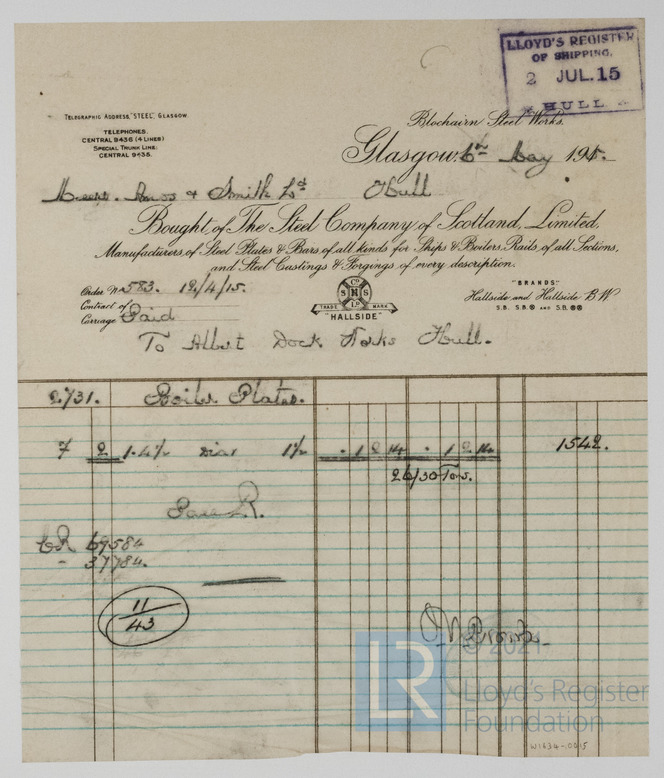 LLOYD'S REGISTER
OF SHIPPING.
2 JUL.15
HULL
TELEGRAPHIC ADDRESS, "STEEL" GLASGOW
TELEPHONES.
CENTRAL 9436 (4 LINES)
SPECIAL TRUNK LINE:
CENTRAL 9435.
Blochairn Steel Works.
Glasgow, 6th May 1915.
Messrs. Amos & Smith Ld Hull
Bought of The Steel Company of Scotland, Limited.
Manufacturers of Steel Plates & Bars of all kinds for Ships & Boilers, Rails of all Sections,
and Steel Castings & Forgings of every description.
Order No 583. 12/4/15.
Contract of
Carriage Paid
Co
S N S
LD
TRADE MARK
"HALLSIDE"
"BRANDS"
Hallside and Hallside B.W
S.B. S.B.® AND S.B.®®
To Albert Dock Works Hull.
2731. Boiler Plates.
7 2 1.4½ Diar 1½ . 1 2 14 . 1 2 14 1542.
26/30 Tons.
CR 69584
- 37784.
11/43
© 2021
LR
Lloyd's Register
Foundation
W1634-0015